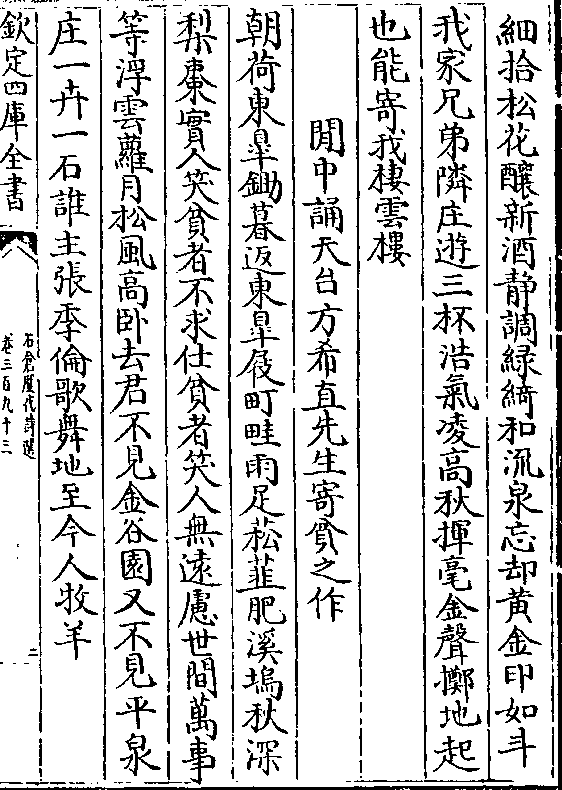 細拾松花釀新酒静調緑綺和流泉忘却黄金印如斗
我家兄弟隣庄遊三杯浩氣凌高秋揮毫金聲擲地起
也能寄我棲雲樓
閒中誦天台方希直先生寄貧之作
朝荷東臯鋤暮返東臯屐町畦雨足菘韮肥溪塢秋深
梨棗實人笑貧者不求仕貧者笑人無遠慮世間萬事
等浮雲蘿月松風高卧去君不見金谷園又不見平泉
庄一卉一石誰主張季倫歌舞地至今人牧羊
欽定四庫全書
石倉歴代詩選
卷三百九十三
二